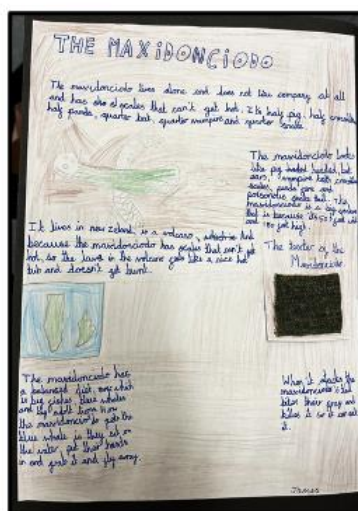 THE MAXIDONCIODO
The maxidonciodo lives alone and does not like company at all
and has scales that can't get hot. It's half pig, half
half panda, quarter bat, quarter vampire and quarter snake.
The maxidonciodo looks
like pig headed, bat
ears, vampire teeth,
scales, panda paws and
poisonous snake tail. The
maxidonciodo is a big
that is because it's
and 150 foot high.
It lives in new zeland, in a volcano, And
because the maxidonciodo has scales that can't get
hot, so the lava in the volcano feels like a nice hot
tub and doesn't get burnt.
The texter of the
Maxidonciodo.
The maxidonciodo has
a balanced diet, one which
is big fishes, blue whales
and big adult lions. How
the maxidonciodo gets the
blue whale is they sit on
the water, put their hands
in and grab it and fly away.
When it attacks the
maxidonciodo's tail
bites their prey and
killes it so it can eat
it.
James